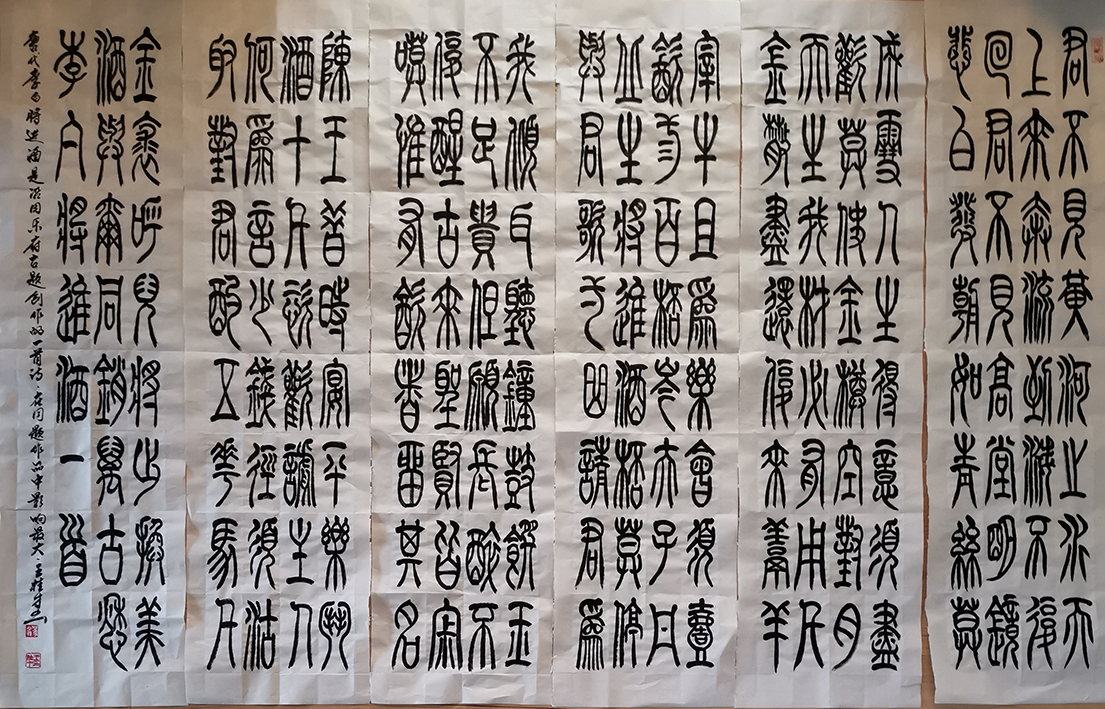 君不見黃河之水天
上來奔流到海不復
回君不見高堂明鏡
悲白髮朝如青絲莫
成雪人生得意須盡
歡莫使金樽空對月
天生我材必有用千
金散盡還復來烹羊
宰牛且為樂會須壹
飲三百杯岑夫子丹
丘生將進酒杯莫停
與君歌一曲請君為
我傾耳聽鐘鼓饌玉
不足貴但願長醉不
復醒古來聖賢皆寂
寞惟有飲者留其名
陳王昔時宴平樂斗
酒十千恣歡謔主人
何為言少錢徑須沽
取對君酌五花馬千
金裘呼兒將出換美
酒與爾同銷萬古愁
李白將進酒一首
唐代李白將进酒是沿用乐府古题创作的一首诗.在同题作品中影响最大.